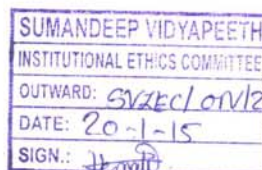 SUMANDEEP VIDYAPEETH
INSTITUTIONAL ETHICS COMMITTEE
OUTWARD: SVIEC/ON/2
DATE: 20-1-15
SIGN.: